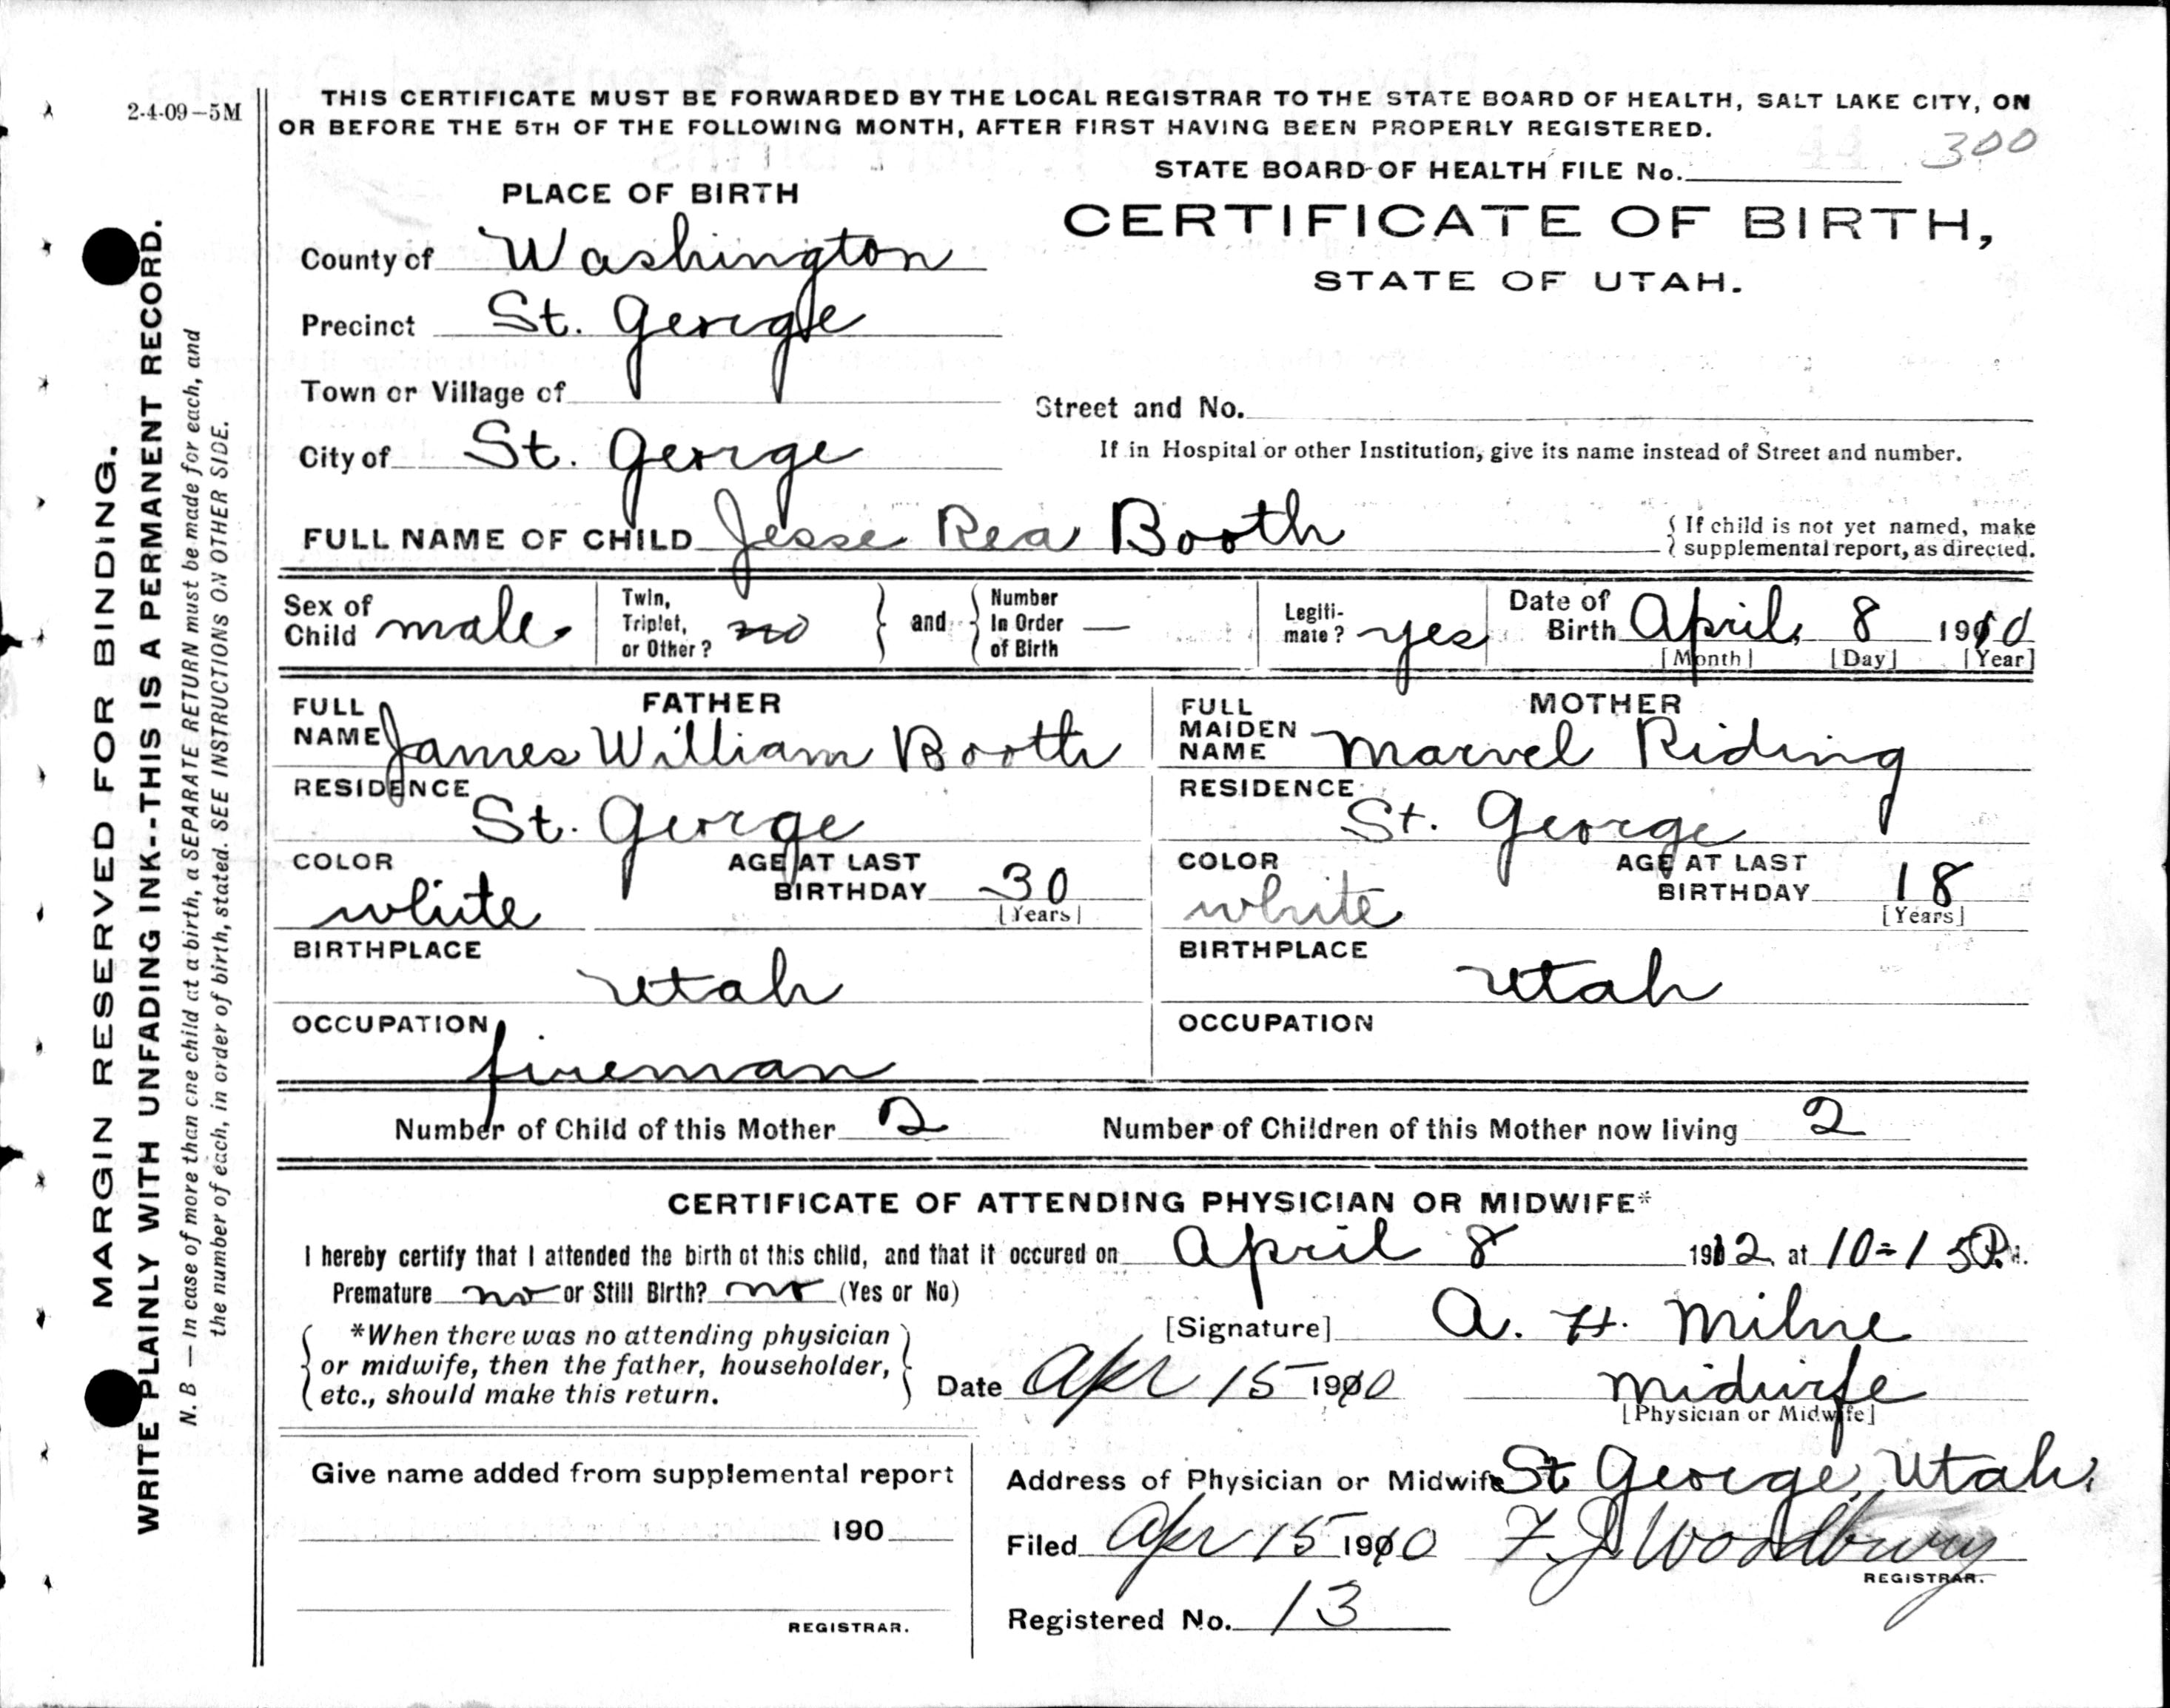 2-4-09–5M
THIS CERTIFICATE MUST BE FORWARDED BY THE LOCAL REGISTRAR TO THE STATE BOARD OF HEALTH, SALT LAKE CITY, ON
OR BEFORE THE 5TH OF THE FOLLOWING MONTH, AFTER FIRST HAVING BEEN PROPERLY REGISTERED.
300
STATE BOARD OF HEALTH FILE No.
PLACE OF BIRTH
CERTIFICATE OF BIRTH,
STATE OF UTAH.
County of Washington
Precinct St. George
Town or Village of
Street and No.
City of St. George
If in Hospital or other Institution, give its name instead of Street and number.
FULL NAME OF CHILD Jesse Rea Booth
If child is not yet named, make
supplemental report, as directed.
Sex of
Child male
Twin,
Triplet,
or Other? no
and
Number
In Order
of Birth —
Legiti-
mate? yes
Date of
Birth April 8 1910
[Month] [Day] [Year]
FATHER
FULL
NAME James William Booth
RESIDENCE
St. George
COLOR
white
AGE AT LAST
BIRTHDAY 30
[Years]
BIRTHPLACE
Utah
OCCUPATION
fireman
MOTHER
FULL
MAIDEN
NAME Marvel Riding
RESIDENCE
St. George
COLOR
white
AGE AT LAST
BIRTHDAY 18
[Years]
BIRTHPLACE
Utah
OCCUPATION
Number of Child of this Mother 2 Number of Children of this Mother now living 2
CERTIFICATE OF ATTENDING PHYSICIAN OR MIDWIFE*
I hereby certify that I attended the birth of this child, and that it occured on April 8 1912 at 10=15 P.
Premature no or Still Birth? no (Yes or No)
*When there was no attending physician
or midwife, then the father, householder,
etc., should make this return.
[Signature] A. H. Milne
Date Apr 15 1910 midwife
[Physician or Midwife]
Give name added from supplemental report
190
REGISTRAR.
Address of Physician or Midwife St George, Utah.
Filed Apr 15 1910 F. J. Woodbury
REGISTRAR.
Registered No. 13
MARGIN RESERVED FOR BINDING.
WRITE PLAINLY WITH UNFADING INK--THIS IS A PERMANENT RECORD.
N. B — In case of more than one child at a birth, a SEPARATE RETURN must be made for each, and
the number of each, in order of birth, stated. SEE INSTRUCTIONS ON OTHER SIDE.